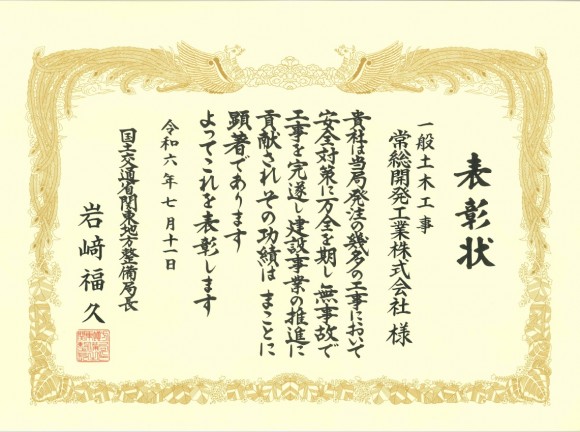 表彰状
一般土木工事
常総開発工業株式会社 様
貴社は当局発注の幾多の工事において
安全対策に万全を期し無事故で
工事を完遂し建設事業の推進に
貢献されその功績は まことに
顕著であります
よってこれを表彰します
令和六年七月十一日
国土交通省関東地方整備局長
岩﨑福久